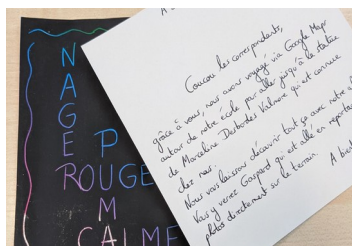 NAGER
ROUGE
PUMA
CALME
Coucou les correspondants,
grâce à vous, nous avons voyagé via Google Maps
autour de notre école pour aller jusqu'à la statue
de Marceline Desbordes Valmore qui est connue
chez nous.
Nous vous laissons découvrir tout ça avec notre
Vous y verrez Gaspard qui est allé en
photos directement sur le terrain. A